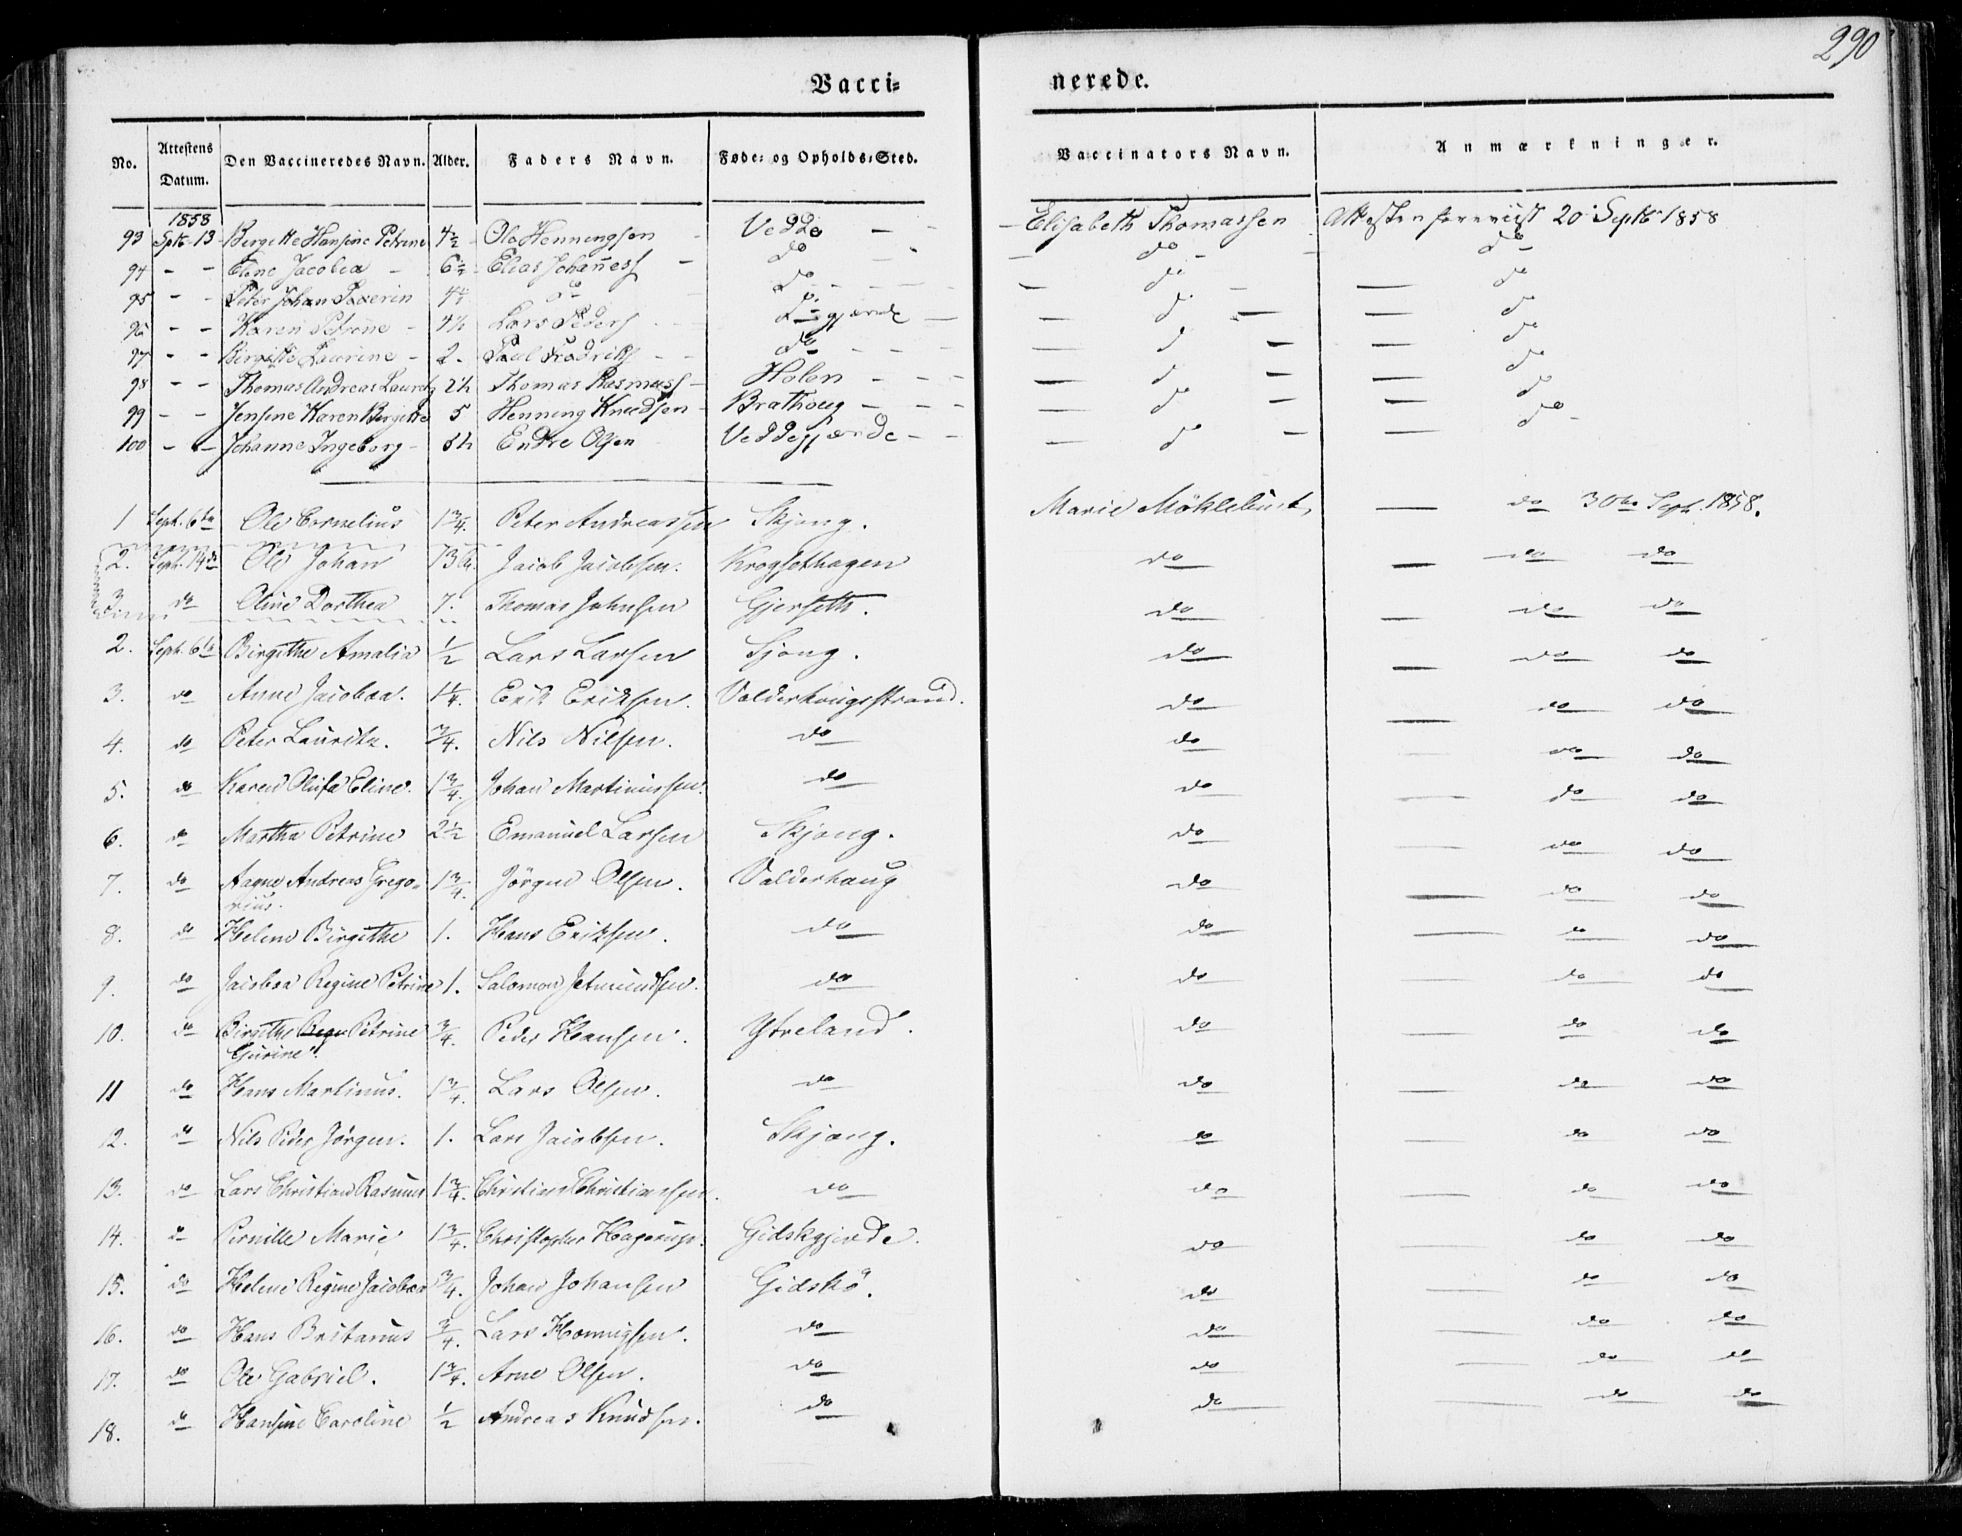 290
Vacci= nerede.
No. Attestens Datum. Den Vaccineredes Navn. Alder. Faders Navn. Føde= og Opholds=Sted. Vaccinators Navn. Anmærkninger.
1858
93 Septr 13 Bergitte Hansine Petrine 4½ Ole Henningsen - Vedde - - - Elisabeth Thomassen Attesten foreviist 20 Septbr 1858
94 - - Eline Jacobea - 6½ Elias Johanness - do - - do - - do -
95 - - Peter Johan Severin 4½ do - do - - - - do - - do
96 - - Karen Petrine - 4½ Lars Peders - - do gjerde - - do - - do
97 - - Birgitte Laurine - 2. Paul Fredriks - - do - - - - do - - do
98 - - Thomas Andreas Lauritz 2½ Thomas Rasmuss - Holen - - - - do - - do
99 - - Jensine Karen Bergitte 5 Henning Knudsen - Brathoug - - - - do - - do
100 - - Johanne Ingeborg - 8½ Endre Olsen Veddegjærde - - - do - - do -
1 Sept. 6te Ole Cornelius 1¾. Peter Andreassen Skjong. Marie Möklebust, - do 30te Sept. 1858.
2. Sept. 14de Ole Johan 13 Jacob Jacobsen. Krogsethagen do - do do
3 do Oline Dorthea 7. Thomas Johnsen Gjerseth. do - do do
2. Sept. 6te Birgithe Amalia ½ Lars Larsen Sjong. do - do do
3. do Anne Jacobea. 1¼. Erik Eriksen. Valderhougsstrand. do - do do
4. do Peter Lauritz. ¾. Nils Nilsen. do do - do do
5. do Karen Olufa Eline. 1¾. Johan Martinussen. do do - do do
6. do Martha Petrine 2½ Emanuel Larsen Skjong. do - do do
7. do Aagne Andreas Grego= 1¾. Jörgen Olsen. Valderhaug do - do do
rius.
8. do Helene Birgithe 1. Hans Eriksen. do do - do do
9. do Jacobea Regine Petrine 1. Salomon Jetmundsen. do do - do do
10. do Birgithe Petrine ¾. Peder Hansen. Ytreland. do - do do
Gurine.
11 do Hans Martinus. 1¾. Lars Olsen. do do - do do
12. do Nils Peder Jörgen. 1. Lars Jacobsen. Skjong. do - do do
13. do Lars Christian Rasmus 1¾. Christian Christiansen. do do - do do
14. do Pernille Marie 1¾. Christopher Hagerup. Gidskgjerde. do - do do
15. do Helene Regine Jacobea ¾. Johan Johansen Gidskö. do - do do
16. do Hans Britanus ¾. Lars Hennigsen. do do - do do
17. do Ole Gabriel. 1¾. Arne Olsen. do do - do do
18. do Hansine Caroline ½ Andreas Knudsen. do do - do do